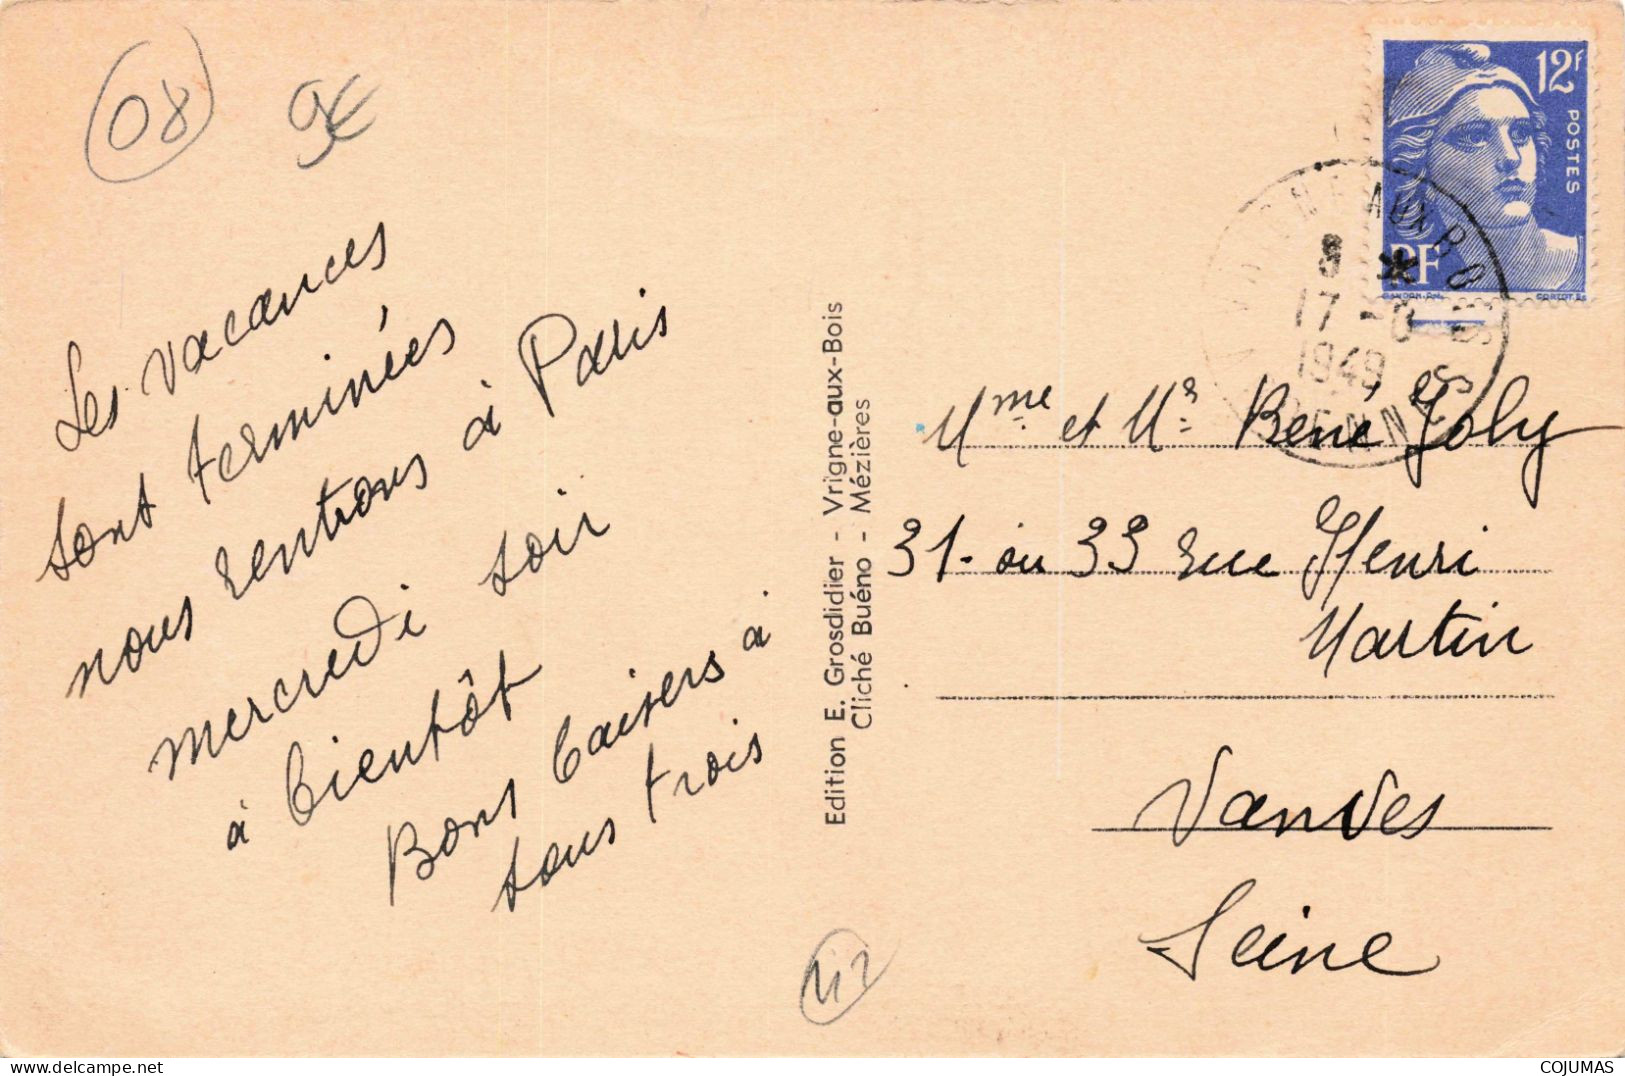 08
9€
Les vacances
sont terminées
nous rentrons à Paris
mercredi soir
à bientôt
Bons baisers à
tous trois
Edition E. Grosdidier - Vrigne-aux-Bois
Cliché Buéno - Mézières
12F
POSTES
RF
GANDON
CORTOT
AUX BO
8 *
17 -
1949
ENNES
Mme et Mr René Joly
31 - ou 33 rue Henri
Martin
Vanves
Seine
COJUMAS